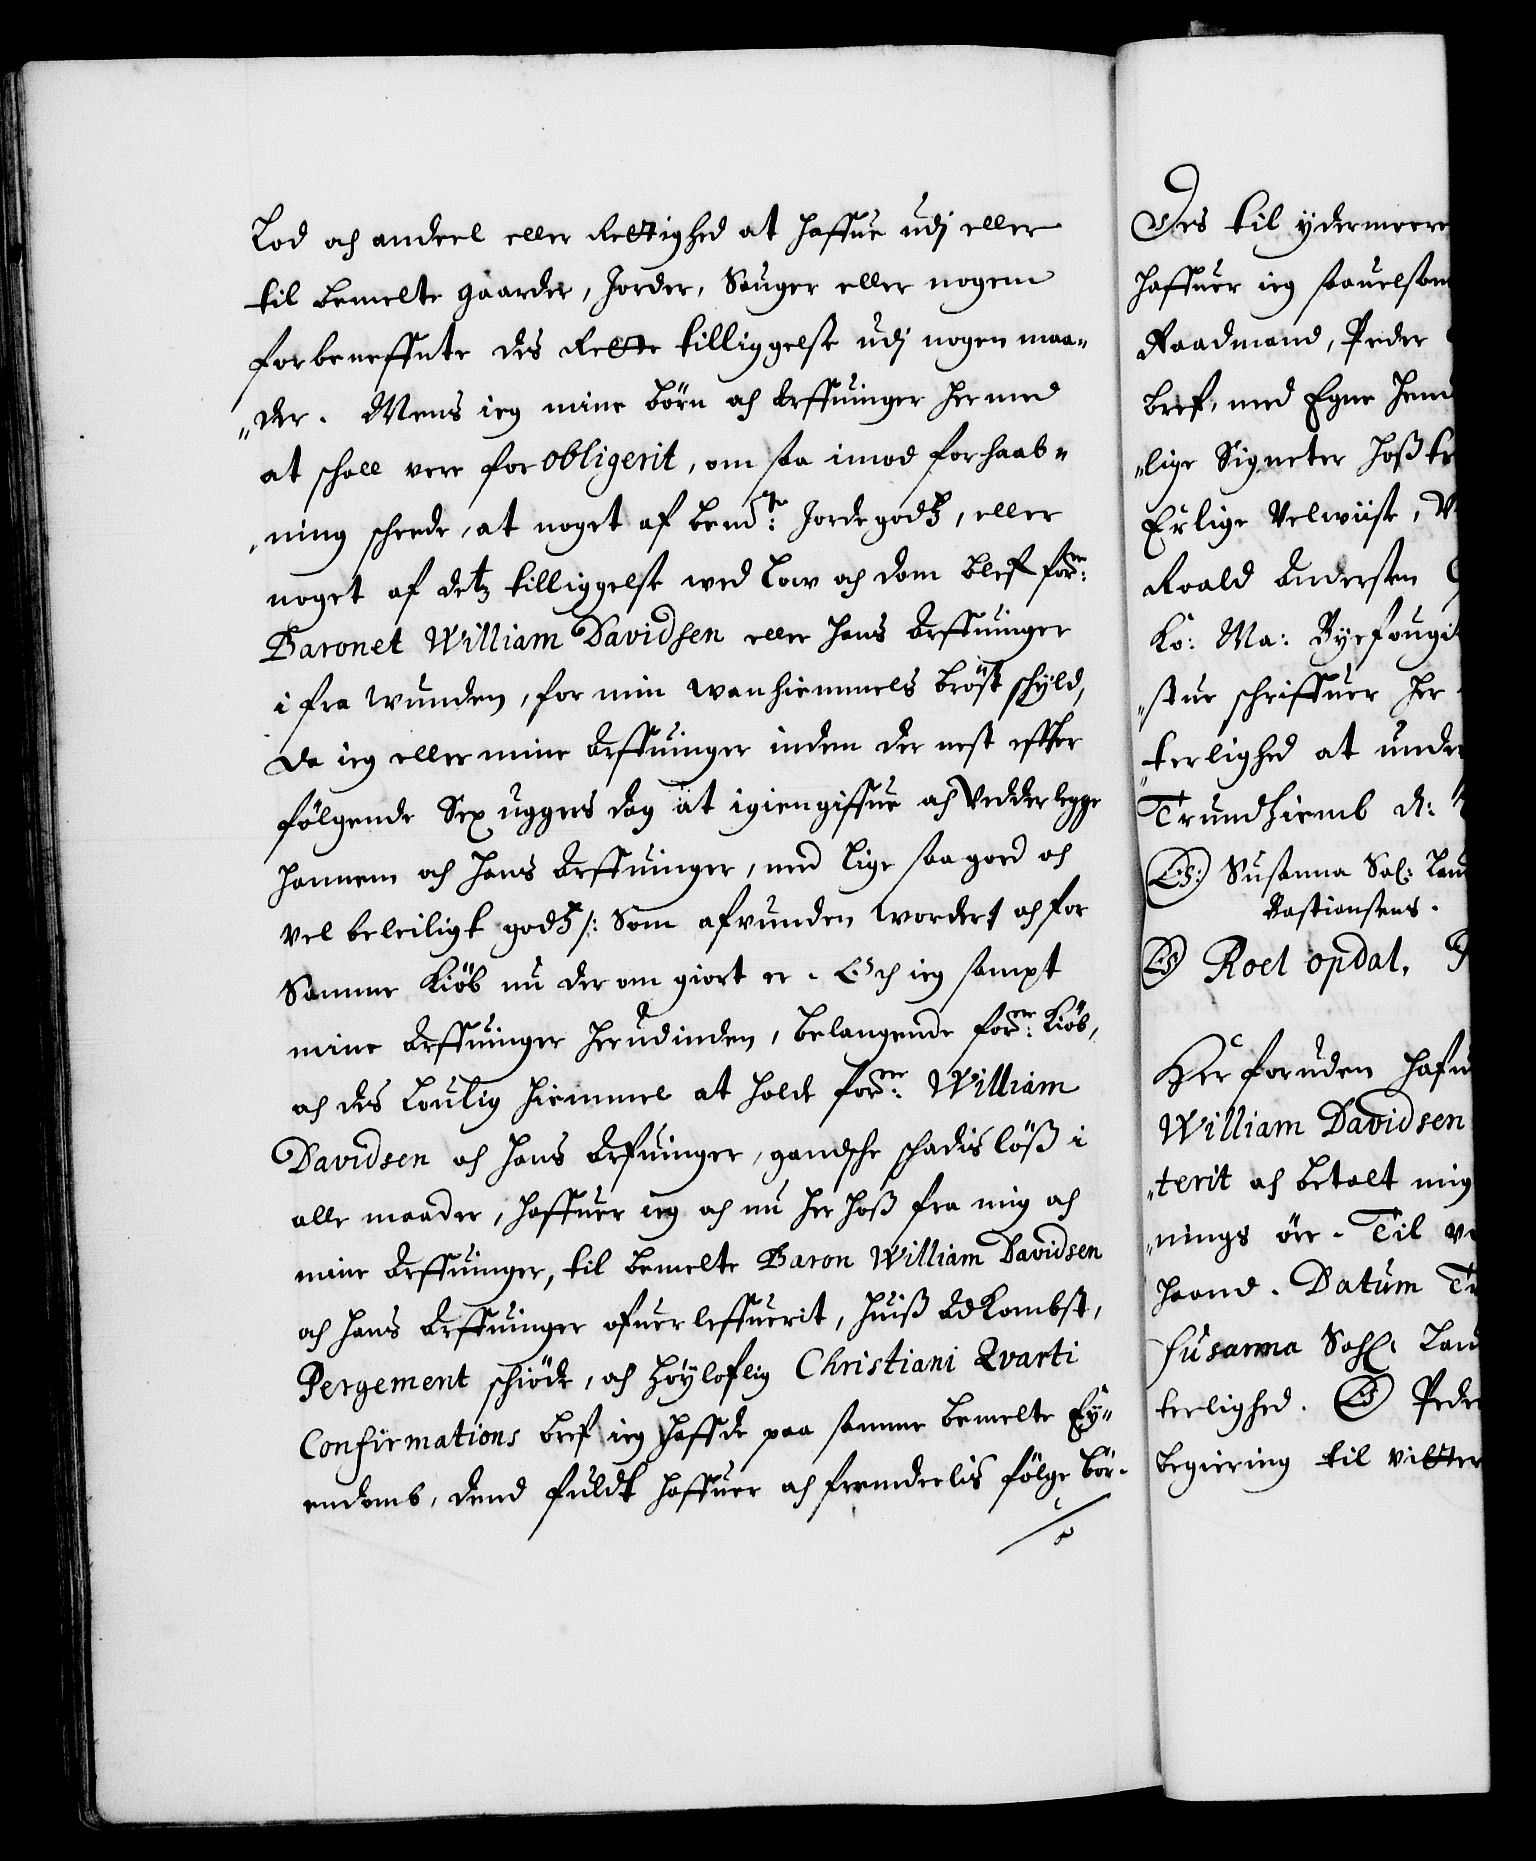 Lod och andeel eller Rettighed at haffue udj eller
til bemelte gaarder, Jorder, Sauger eller nogen
forbeneffnte des Rette tilliggelse udj nogen maa-
"der. Mens ieg mine börn och Arffuinger her med
at schall vere for obligerit, om saa imod forhaab-
"ning scheede, at noget af bemte: Jordegodtz, eller
noget af detz tilliggelse wed Low och dom blef forne:
Baronet William Davidsen eller hans Arffuinger
i fra wunden, for min wanhiemmels bröst schyld,
Da ieg eller mine Arffuinger inden der nest effter
fölgende Sex uggers dag at igiengiffue och Vedderlegge
hannem och hans Arffuinger, med lige saa goed och
vel beleiligt godtz /: Som afvunden worder :/ och for
Samme Kiöb nu der om giort er. Och ieg sampt
mine Arffuinger her udinden, belangende forne: Kiöb,
och des Loulig hiemmel at holde forne: William
Davidsen och hans Arfuinger, gandsche schadislöß i
alle maader, haffuer ieg och nu her hoß fra mig och
mine Arffuinger, til bemelte Baron William Davidsen
och hans Arffuinger ofuerleffuerit, huiß Adkombst,
Pergement schiöde, och höyloflig Christiani Qvarti
Confirmations bref ieg haffde paa samme bemelte Ey-
endomb, dend fuldt haffuer och fremdeelis fölge bör.
Des til ydermeere
haffuer ieg saauelsom
Raadmand, Peder
bref, med Egne hend
"lige Signeter hoß
Erlige Velwiise,
Roald Andersen
Ko: Ma: Byefougit
"stue schriffuer her
"terlighed at unde
Trundhiemb d:
(LS:) Susanna Sal: Lau
Bastiansens.
(LS) Roel opdal,
Her foruden hafu
William Davidsen
"terit och betalt mig
"nings öre. Til
haand. Datum
Susanna Sahl: Lau
terlighed. (LS) Peder
begiering til vitter